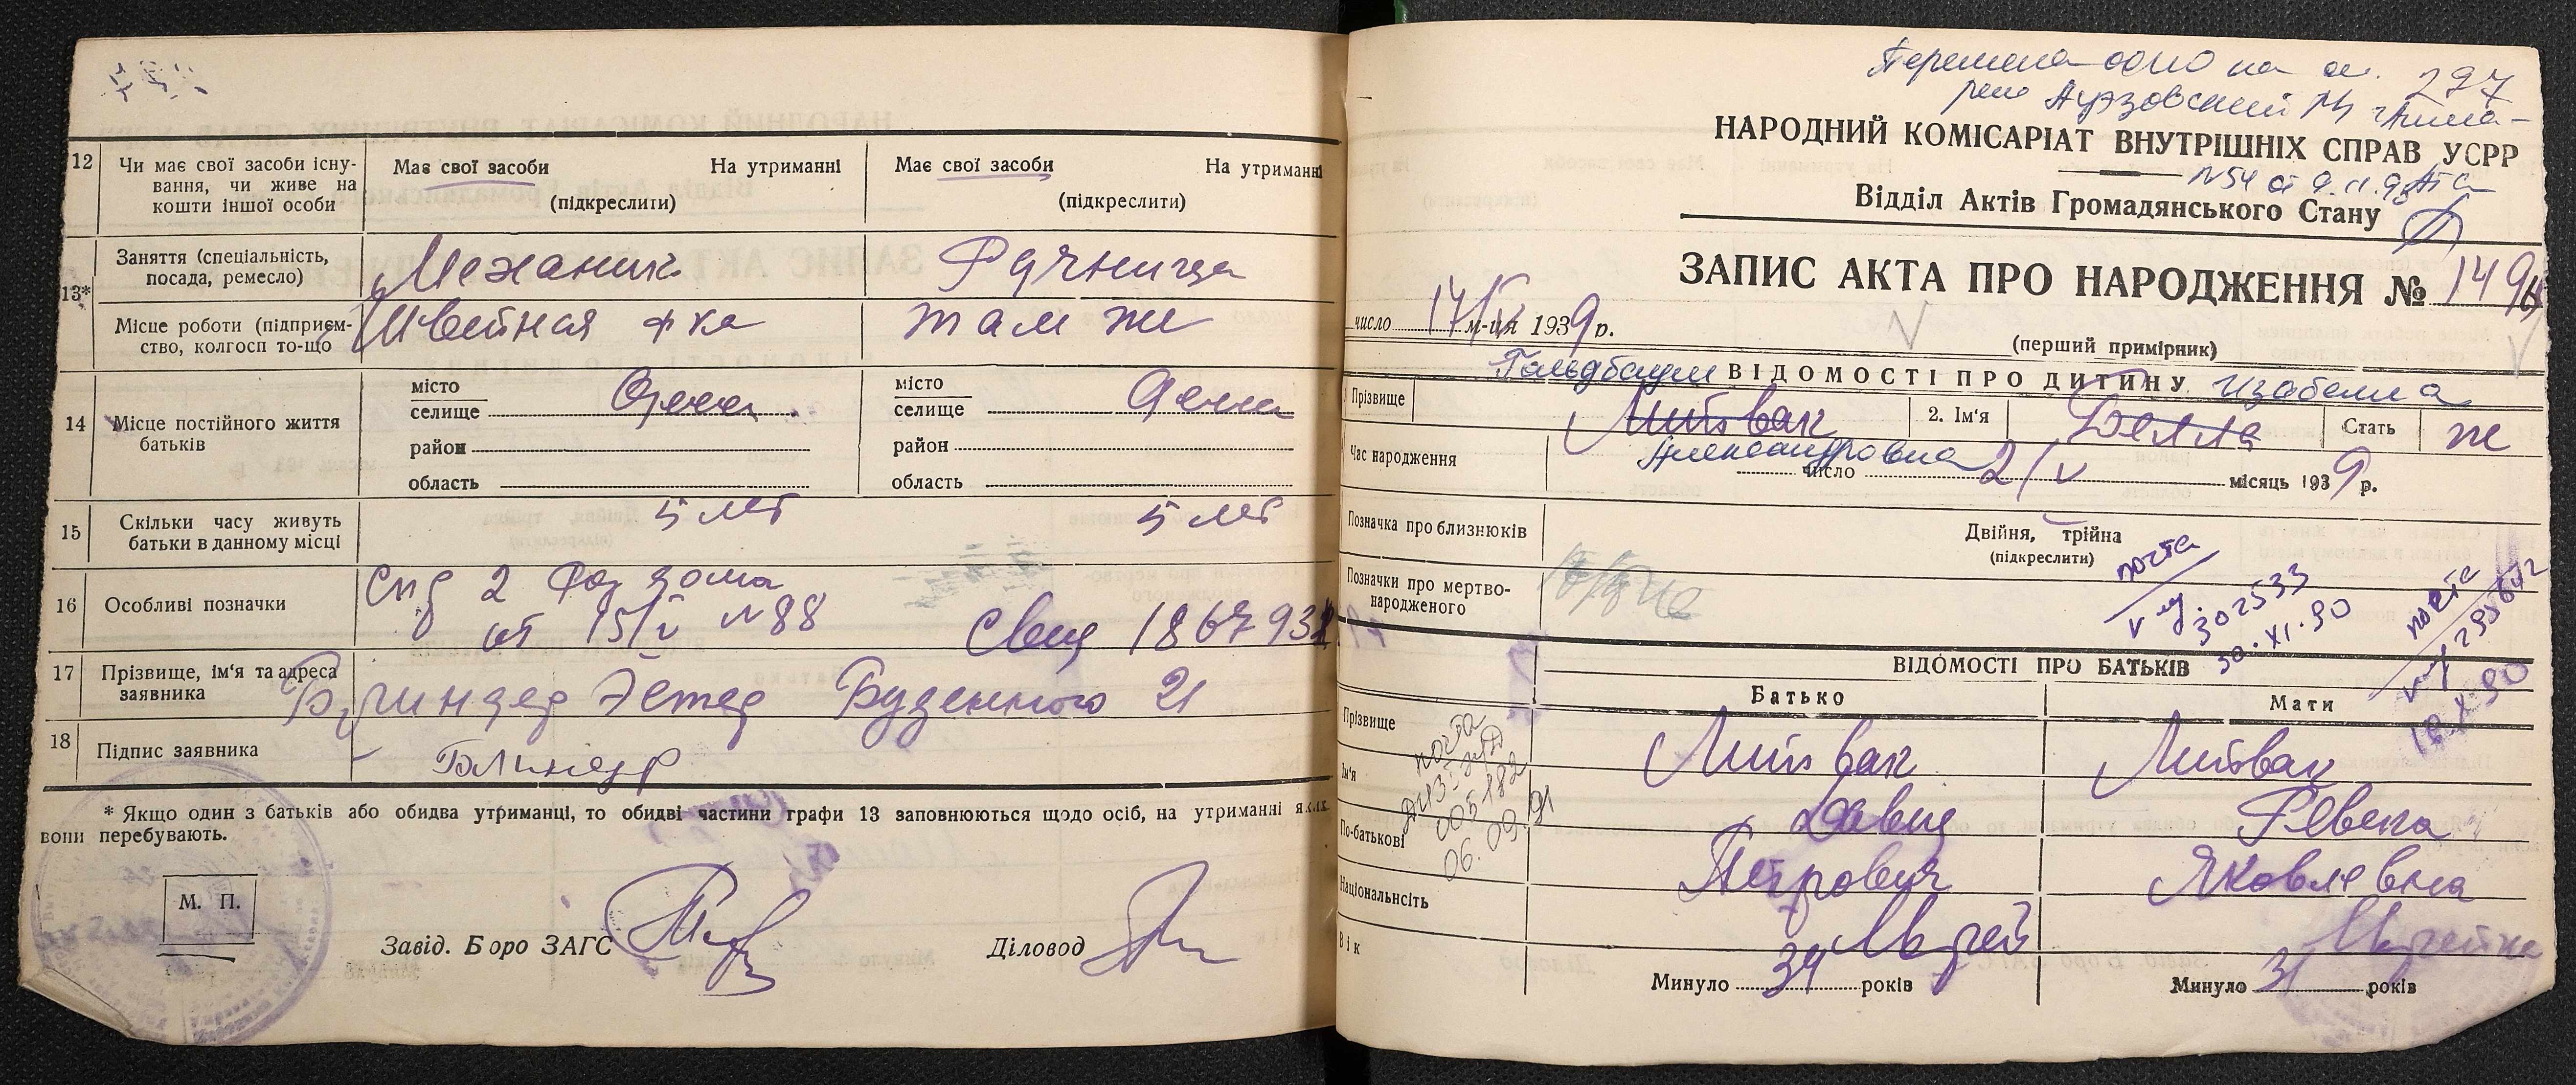 12
Чи має свої засоби існу-
вання, чи живе на
кошти іншої особи
Має свої засоби
На утриманні
(підкреслити)
Має свої засоби
На утриманні
(підкреслити)
13*
Заняття (спеціальність,
посада, ремесло)
Механик
Місце роботи (підприєм-
ство, колгосп то-що
Швейная ф ка
там же
14
Місце постійного життя
батьків
місто
селище
Одесса
район
область
місто
селище
Одесса
район
область
15
Скільки часу живуть
батьки в данному місці
5 лет
5 лет
16
Особливі позначки
Спр 2 Род дома
от 15/V №88
17
Прізвище, ім'я та адреса
заявника
Эстер Буденного 21
18
Підпис заявника
* Якщо один з батьків або обидва утриманці, то обидві частини графи 13 заповнюються щодо осіб, на утриманні яких
вони перебувають.
М. П.
Завід. Бюро ЗАГС
Діловод
НАРОДНИЙ КОМІСАРІАТ ВНУТРІШНІХ СПРАВ УСРР
Відділ Актів Громадянського Стану
ЗАПИС АКТА ПРО НАРОДЖЕННЯ №
число 17/V м-ця 1939 р.
(перший примірник)
Гольдбаум
ВІДОМОСТІ ПРО ДИТИНУ
Изабелла
Прізвище
Литвак
2. Ім'я
Белла
Стать
ж
Александровна
Час народження
число 2/V місяць 1939 р.
Позначка про близнюків
Двійня, трійна
(підкреслити)
Позначки про мертво-
народженого
почта
302533
30.XI.90
почта
ВІДОМОСТІ ПРО БАТЬКІВ
Батько
Мати
Прізвище
Литвак
Литвак
Ім'я
Давид
Ревека
По-батькові
Петрович
Яковлевна
Національність
Еврей
Еврейка
Вік
Минуло 34 років
Минуло 31 років
почта
005182
06.09.91